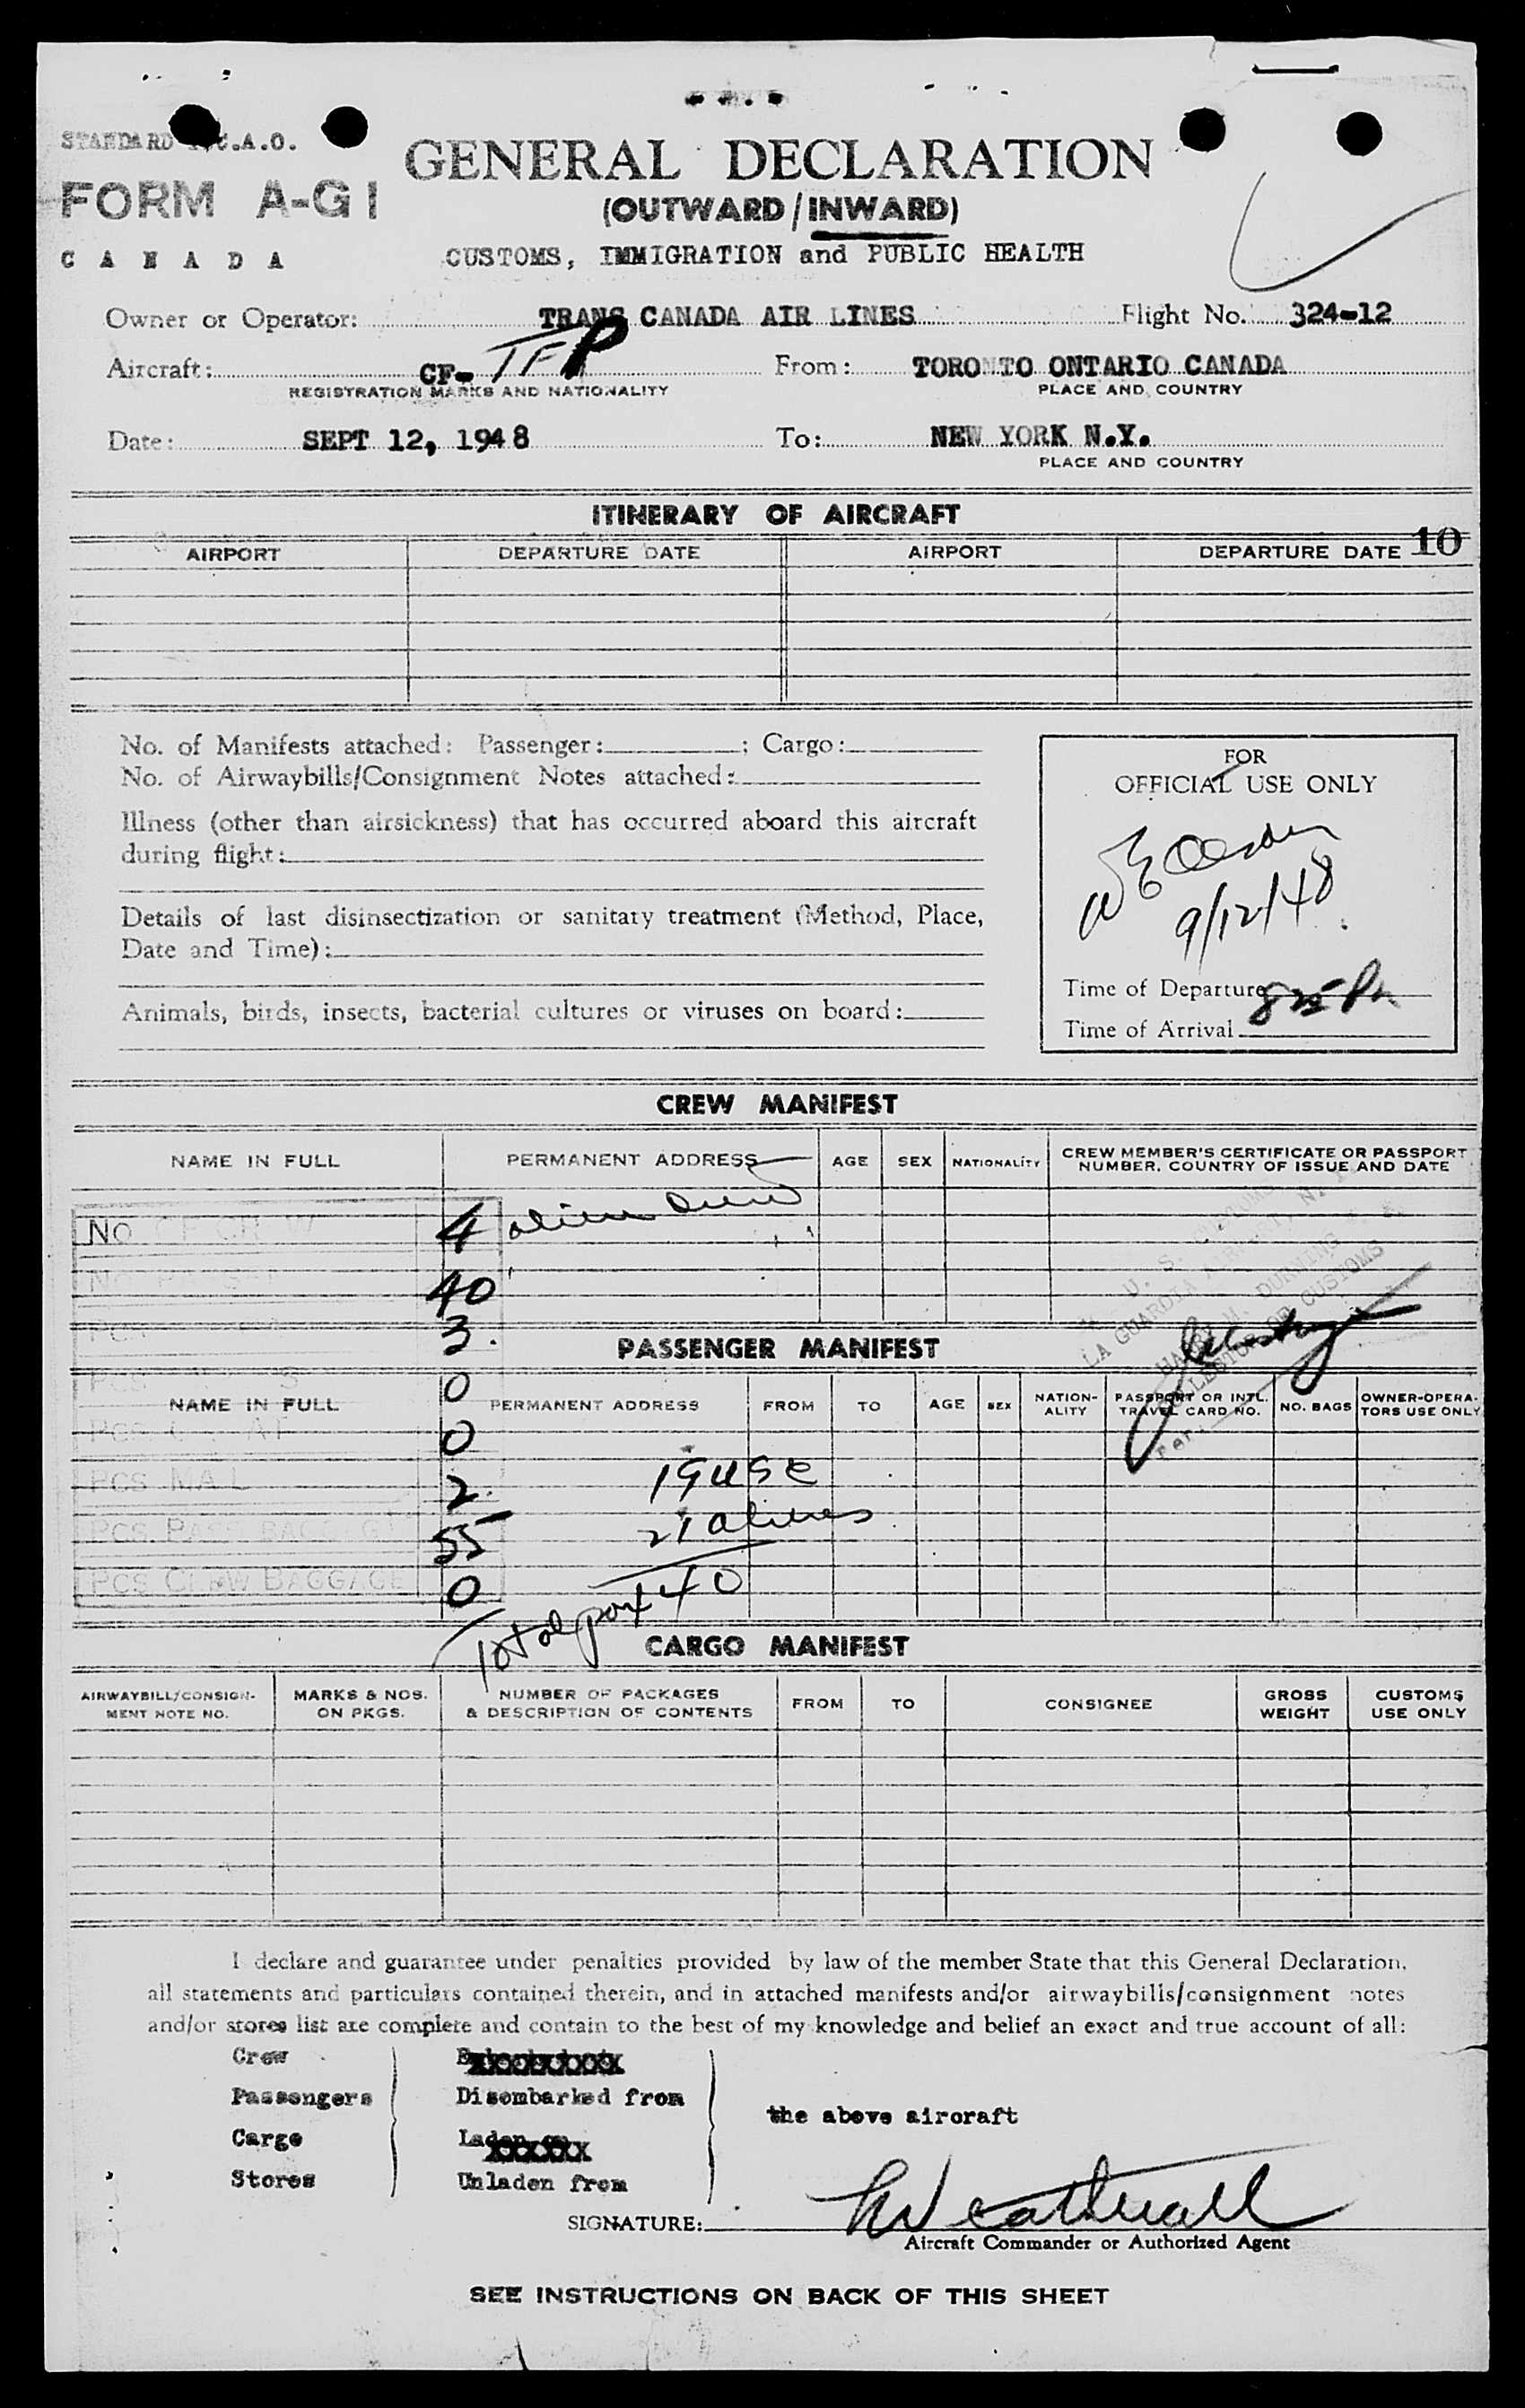 STANDARD I.C.A.O.
FORM A-G1
CANADA
GENERAL DECLARATION
(OUTWARD/INWARD)
CUSTOMS, IMMIGRATION and PUBLIC HEALTH
Owner or Operator: TRANS CANADA AIR LINES Flight No. 324-12
Aircraft: CF-TFP From: TORONTO ONTARIO CANADA
REGISTRATION MARKS AND NATIONALITY PLACE AND COUNTRY
Date: SEPT 12, 1948 To: NEW YORK N.Y.
PLACE AND COUNTRY
ITINERARY OF AIRCRAFT
10
AIRPORT DEPARTURE DATE AIRPORT DEPARTURE DATE
No. of Manifests attached: Passenger: ; Cargo:
No. of Airwaybills/Consignment Notes attached:
Illness (other than airsickness) that has occurred aboard this aircraft
during flight:
Details of last disinsectization or sanitary treatment (Method, Place,
Date and Time):
Animals, birds, insects, bacterial cultures or viruses on board:
FOR
OFFICIAL USE ONLY
9/12/48
Time of Departure
825 Pm
Time of Arrival
CREW MANIFEST
NAME IN FULL PERMANENT ADDRESS AGE SEX NATIONALITY CREW MEMBER'S CERTIFICATE OR PASSPORT
NUMBER, COUNTRY OF ISSUE AND DATE
No OF CREW 4 alien crew
40
3
U. S. CUSTOMS
LA GUARDIA AIRPORT, N. Y.
HARRY M. DURNING
COLLECTOR OF CUSTOMS
Per
PASSENGER MANIFEST
PCS 0
NAME IN FULL PERMANENT ADDRESS FROM TO AGE SEX NATION-
ALITY PASSPORT OR INTL.
TRAVEL CARD NO. NO. BAGS OWNER-OPERA-
TORS USE ONLY
PCS 0
PCS MAIL 2
19 USC
PCS. PASS BAGGAGE 55
21 aliens
PCS CREW BAGGAGE 0
Total pax 40
CARGO MANIFEST
AIRWAYBILL/CONSIGN-
MENT NOTE NO. MARKS & NOS.
ON PKGS. NUMBER OF PACKAGES
& DESCRIPTION OF CONTENTS FROM TO CONSIGNEE GROSS
WEIGHT CUSTOMS
USE ONLY
I declare and guarantee under penalties provided by law of the member State that this General Declaration,
all statements and particulars contained therein, and in attached manifests and/or airwaybills/consignment notes
and/or stores list are complete and contain to the best of my knowledge and belief an exact and true account of all:
Crew
Passengers Disembarked from
the above aircraft
Cargo Laden on
Stores Unladen from
SIGNATURE:
Aircraft Commander or Authorized Agent
SEE INSTRUCTIONS ON BACK OF THIS SHEET